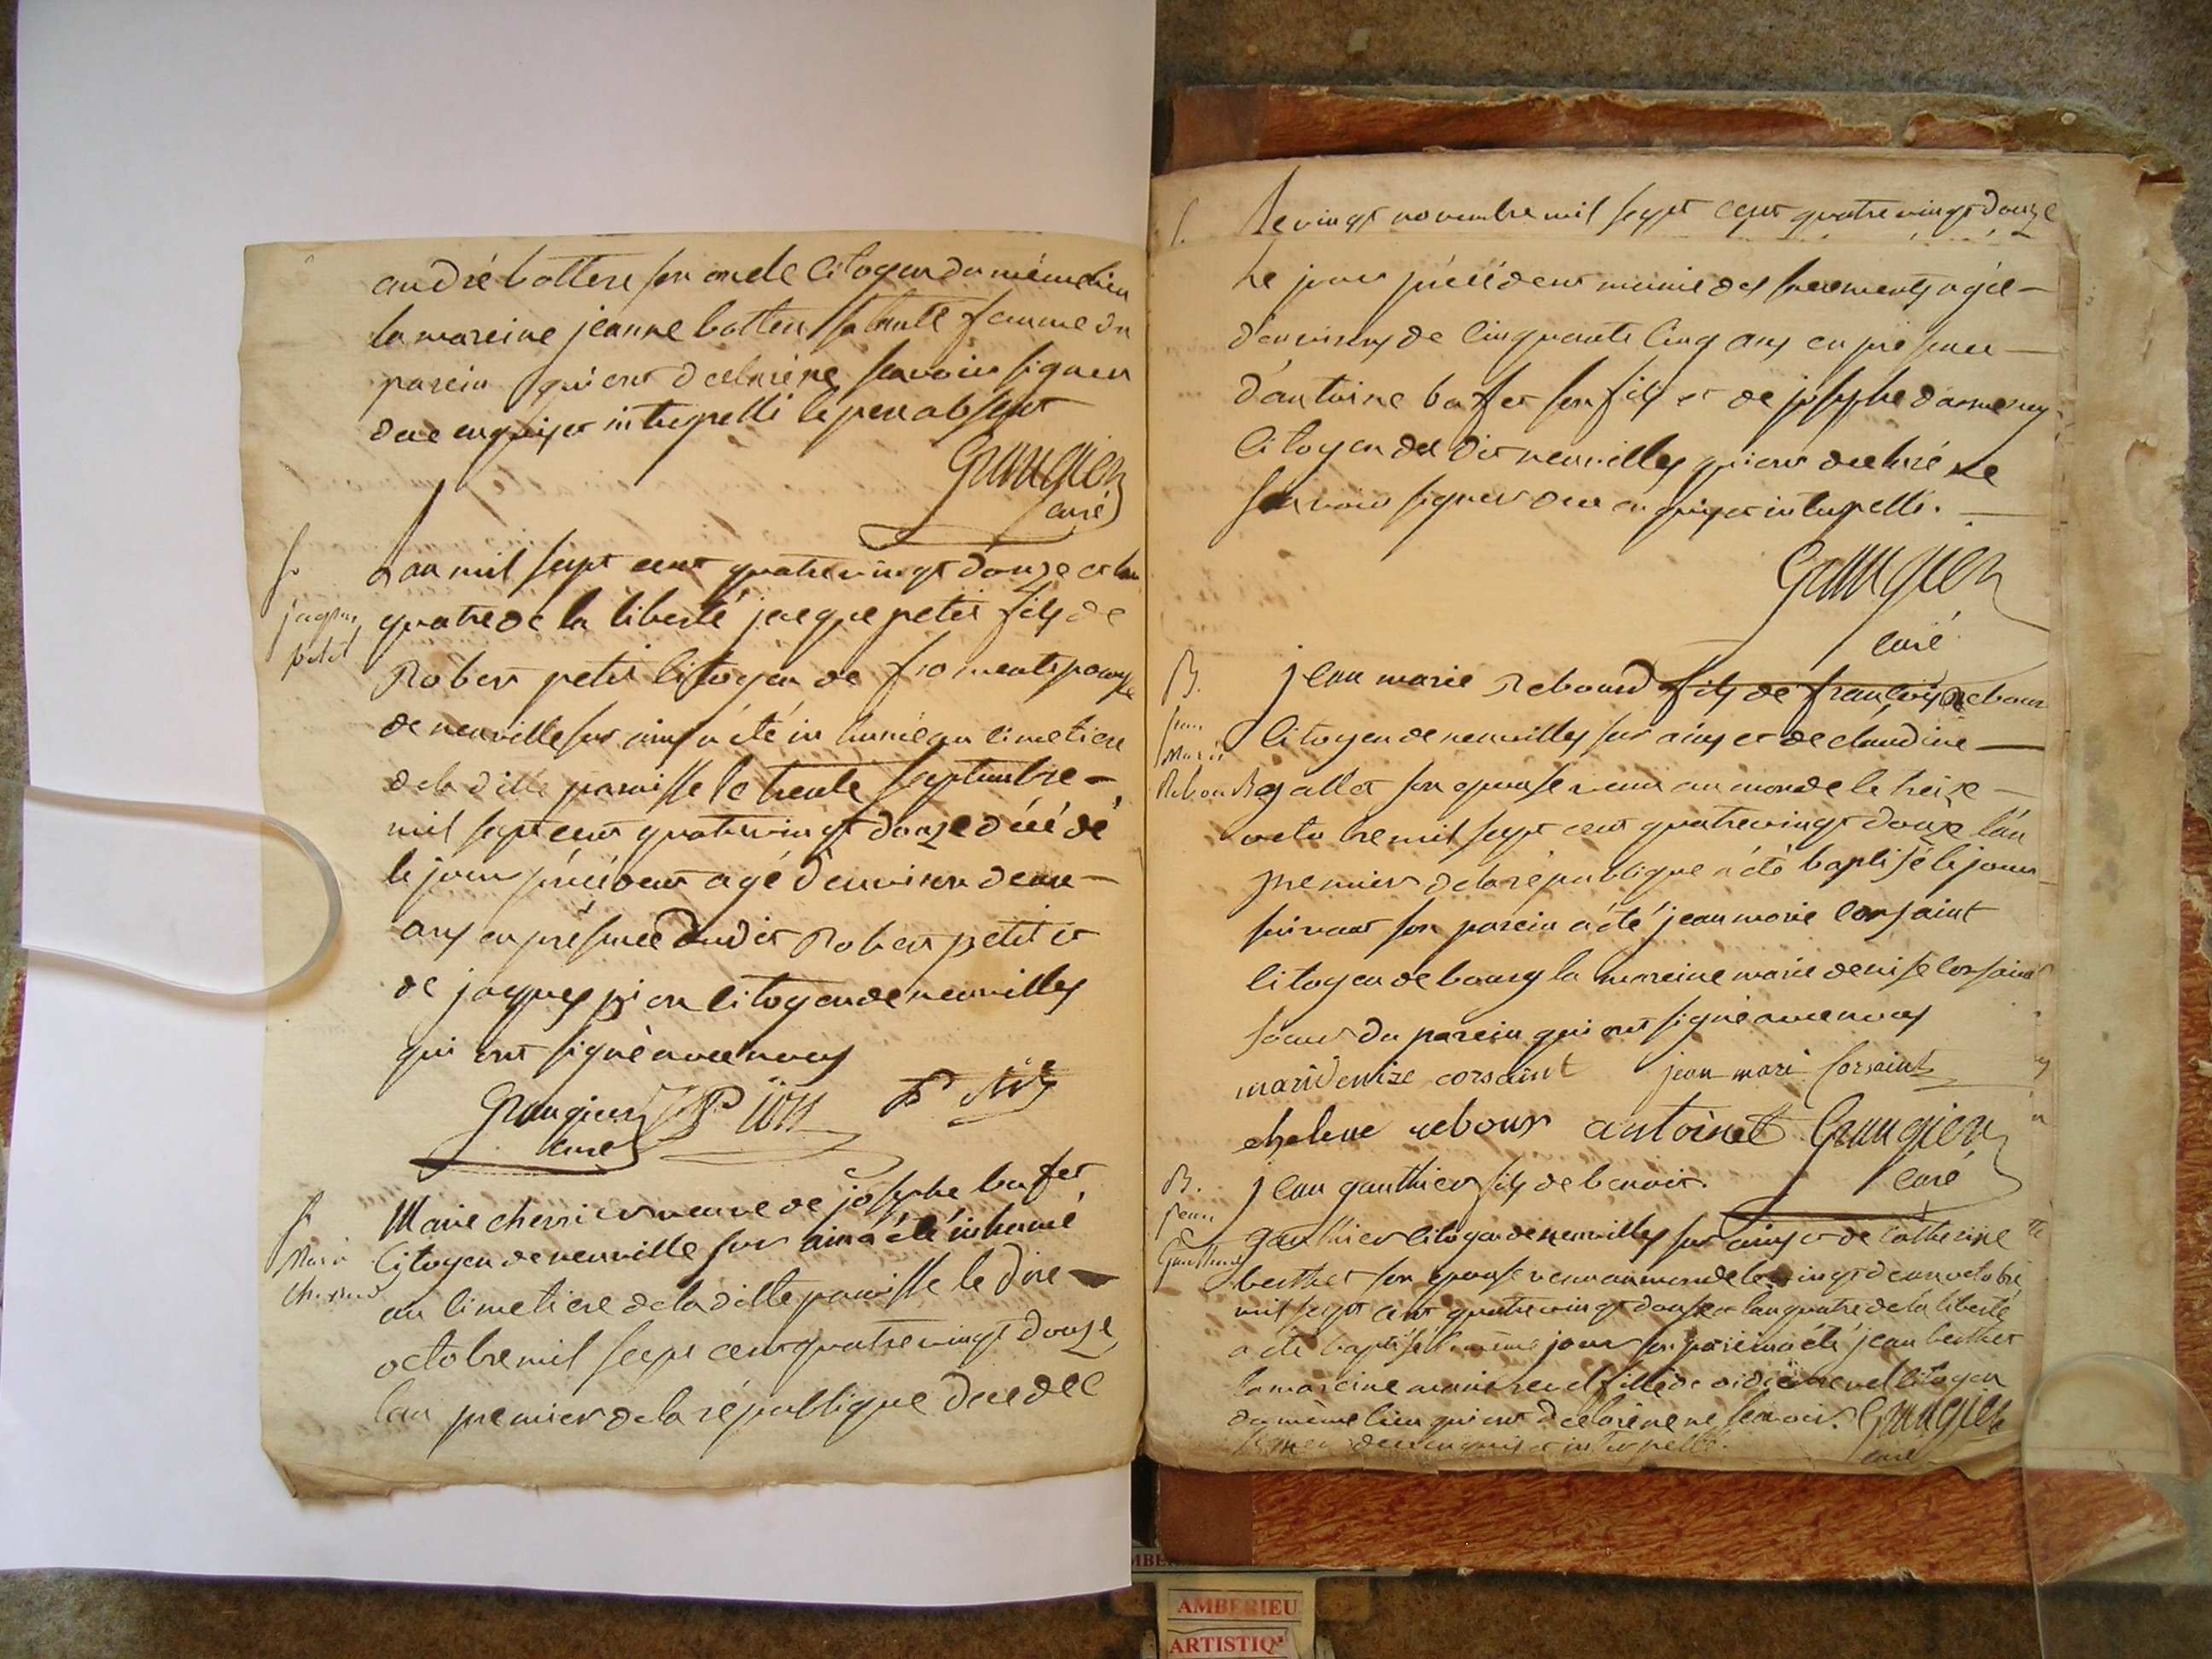 andré bottere son oncle Citoyen du même lieu
la mareine jeanne bottere sa tante femme du
parein qui ont declaré ne scavoir signer
de ce enquis et interpellé le pere absent
Grangier
curé
S.
jaques
petit
L'an mil sept cent quatre vingt douze et l'an
quatre de la liberté jacque petit fils de
Robert petit Citoyen de fromente paroisse
de neuville sur ains a été inhumé au cimetiere
de la ditte paroisse le trente septembre
mil sept cent quatre vingt douze décédé
le jour précédent agé d'environ deux
ans en présence dudit Robert petit et
de jaques pion citoyen de neuvilles
qui ont signé avec nous
Grangier J Pion P
curé
S.
Marie
Cherrier
Marie cherrier veuve de josephe bufet
Citoyen de neuville sur ains a été inhumé
au cimetiere de la ditte paroisse le dix
octobre mil sept cent quatre vingt douze
l'an premier de la république decedee
S. Le vingt novembre mil sept cent quatre vingt douze
le jour précédent munie des sacrements agée
d'environ de cinquante cinq ans en présence
d'antoine bufet son fils et de josephe
Citoyen du dit neuvilles qui ont declaré ne
scavoir signer de ce enquis et interpellé.
Grangier
curé
B.
jean
Marie
Rebourd
jean marie Rebourd fils de françois Rebour
Citoyen de neuvilles sur ains et de claudine
gallet son epouse venu au monde le treize
octobre mil sept cent quatre vingt douze l'an
premier de la république a été baptisé le jour
suivant son parein a été jean marie corsaint
Citoyen de bourg la mareine marie denise corsaint
soeur du parein qui ont signé avec nous
marie denize corsaint jean mari Corsaint
rebour antoine Grangier
curé
B.
Jean
Gauthier
jean gauthier fils de benoit
gauthier Citoyen de neuvilles sur ains et de Catherine
berthet son epouse venu au monde le vingt deux octobre
mil sept cent quatre vingt douze et l'an quatre de la liberté
a été baptisé le même jour son parein a été jean berthet
la mareine marie fille de Citoyen
du même lieu qui ont déclaré ne scavoir Grangier
signer de ce enquis et interpellé. curé
AMBERIEU
ARTISTIQ